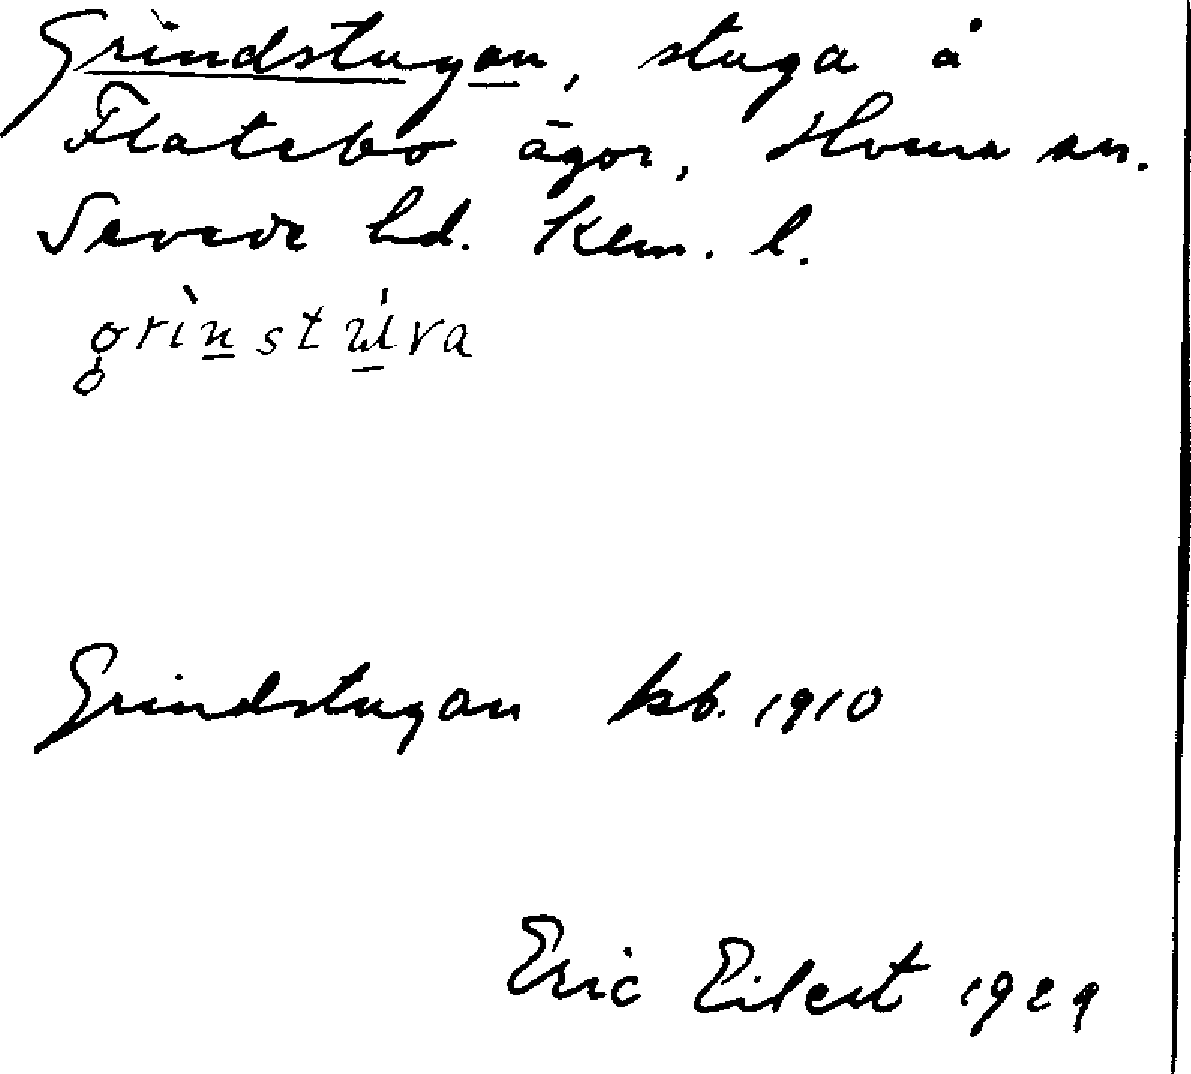 Grindstugan, stuga å
Flatebo ägor, Hvena sn.
Sevede hd. Kalm. l.
grìnstúva
Grindstugan kb. 1910
Eric Eilert 1929